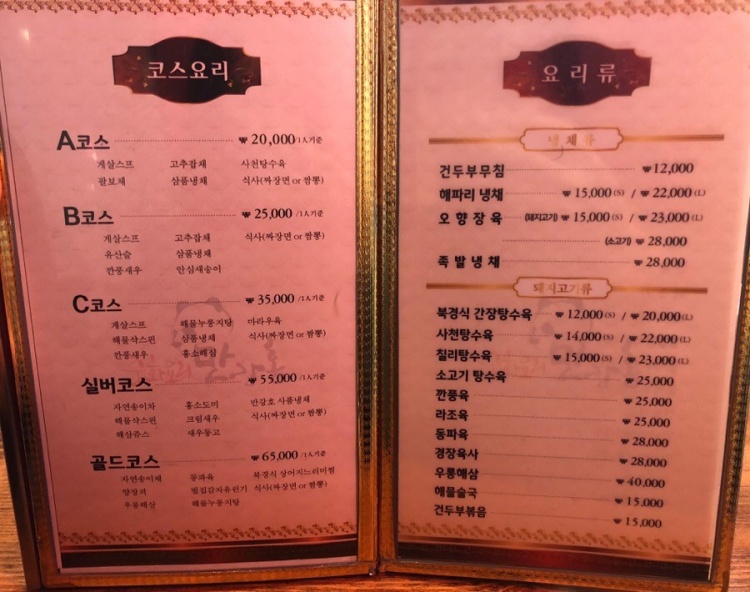 코스요리
A코스 ₩ 20,000/1人기준
게살스프 고추잡채 사천탕수육
팔보채 삼품냉채 식사(짜장면 or 짬뽕)
B코스 ₩ 25,000 /1人기준
게살스프 고추잡채 식사(짜장면 or 짬뽕)
유산슬 삼품냉채
깐풍새우 안심새송이
C코스 ₩ 35,000 /1人기준
게살스프 해물누룽지탕 마라우육
해물삭스핀 삼품냉채 식사(짜장면 or 짬뽕)
깐풍새우 홍소해삼
실버코스 ₩ 55,000 /1人기준
자연송이차 홍소도미 반강호 사품냉채
해물삭스핀 크림새우 식사(짜장면 or 짬뽕)
해삼쥬스 새우동고
골드코스 ₩ 65,000 /1人기준
자연송이채 동파육 북경식 상어지느러미찜
양장피 벌집감자유린기 식사(짜장면 or 짬뽕)
우롱해삼 해물누룽지탕
요리류
냉채류
건두부무침 ₩12,000
해파리 냉채 ₩ 15,000(S) / ₩ 22,000(L)
오향장육 (돼지고기) ₩ 15,000(S) / ₩ 23,000(L)
(소고기) ₩ 28,000
족발냉채 ₩ 28,000
돼지고기류
북경식 간장탕수육 ₩ 12,000(S) / ₩ 20,000(L)
사천탕수육 ₩ 14,000(S) / ₩ 22,000(L)
칠리탕수육 ₩ 15,000(S) / ₩ 23,000(L)
소고기 탕수육 ₩ 25,000
깐풍육 ₩ 25,000
라조육 ₩ 25,000
동파육 ₩ 28,000
경장육사 ₩ 28,000
우롱해삼 ₩ 40,000
해물술국 ₩ 15,000
건두부볶음 ₩ 15,000